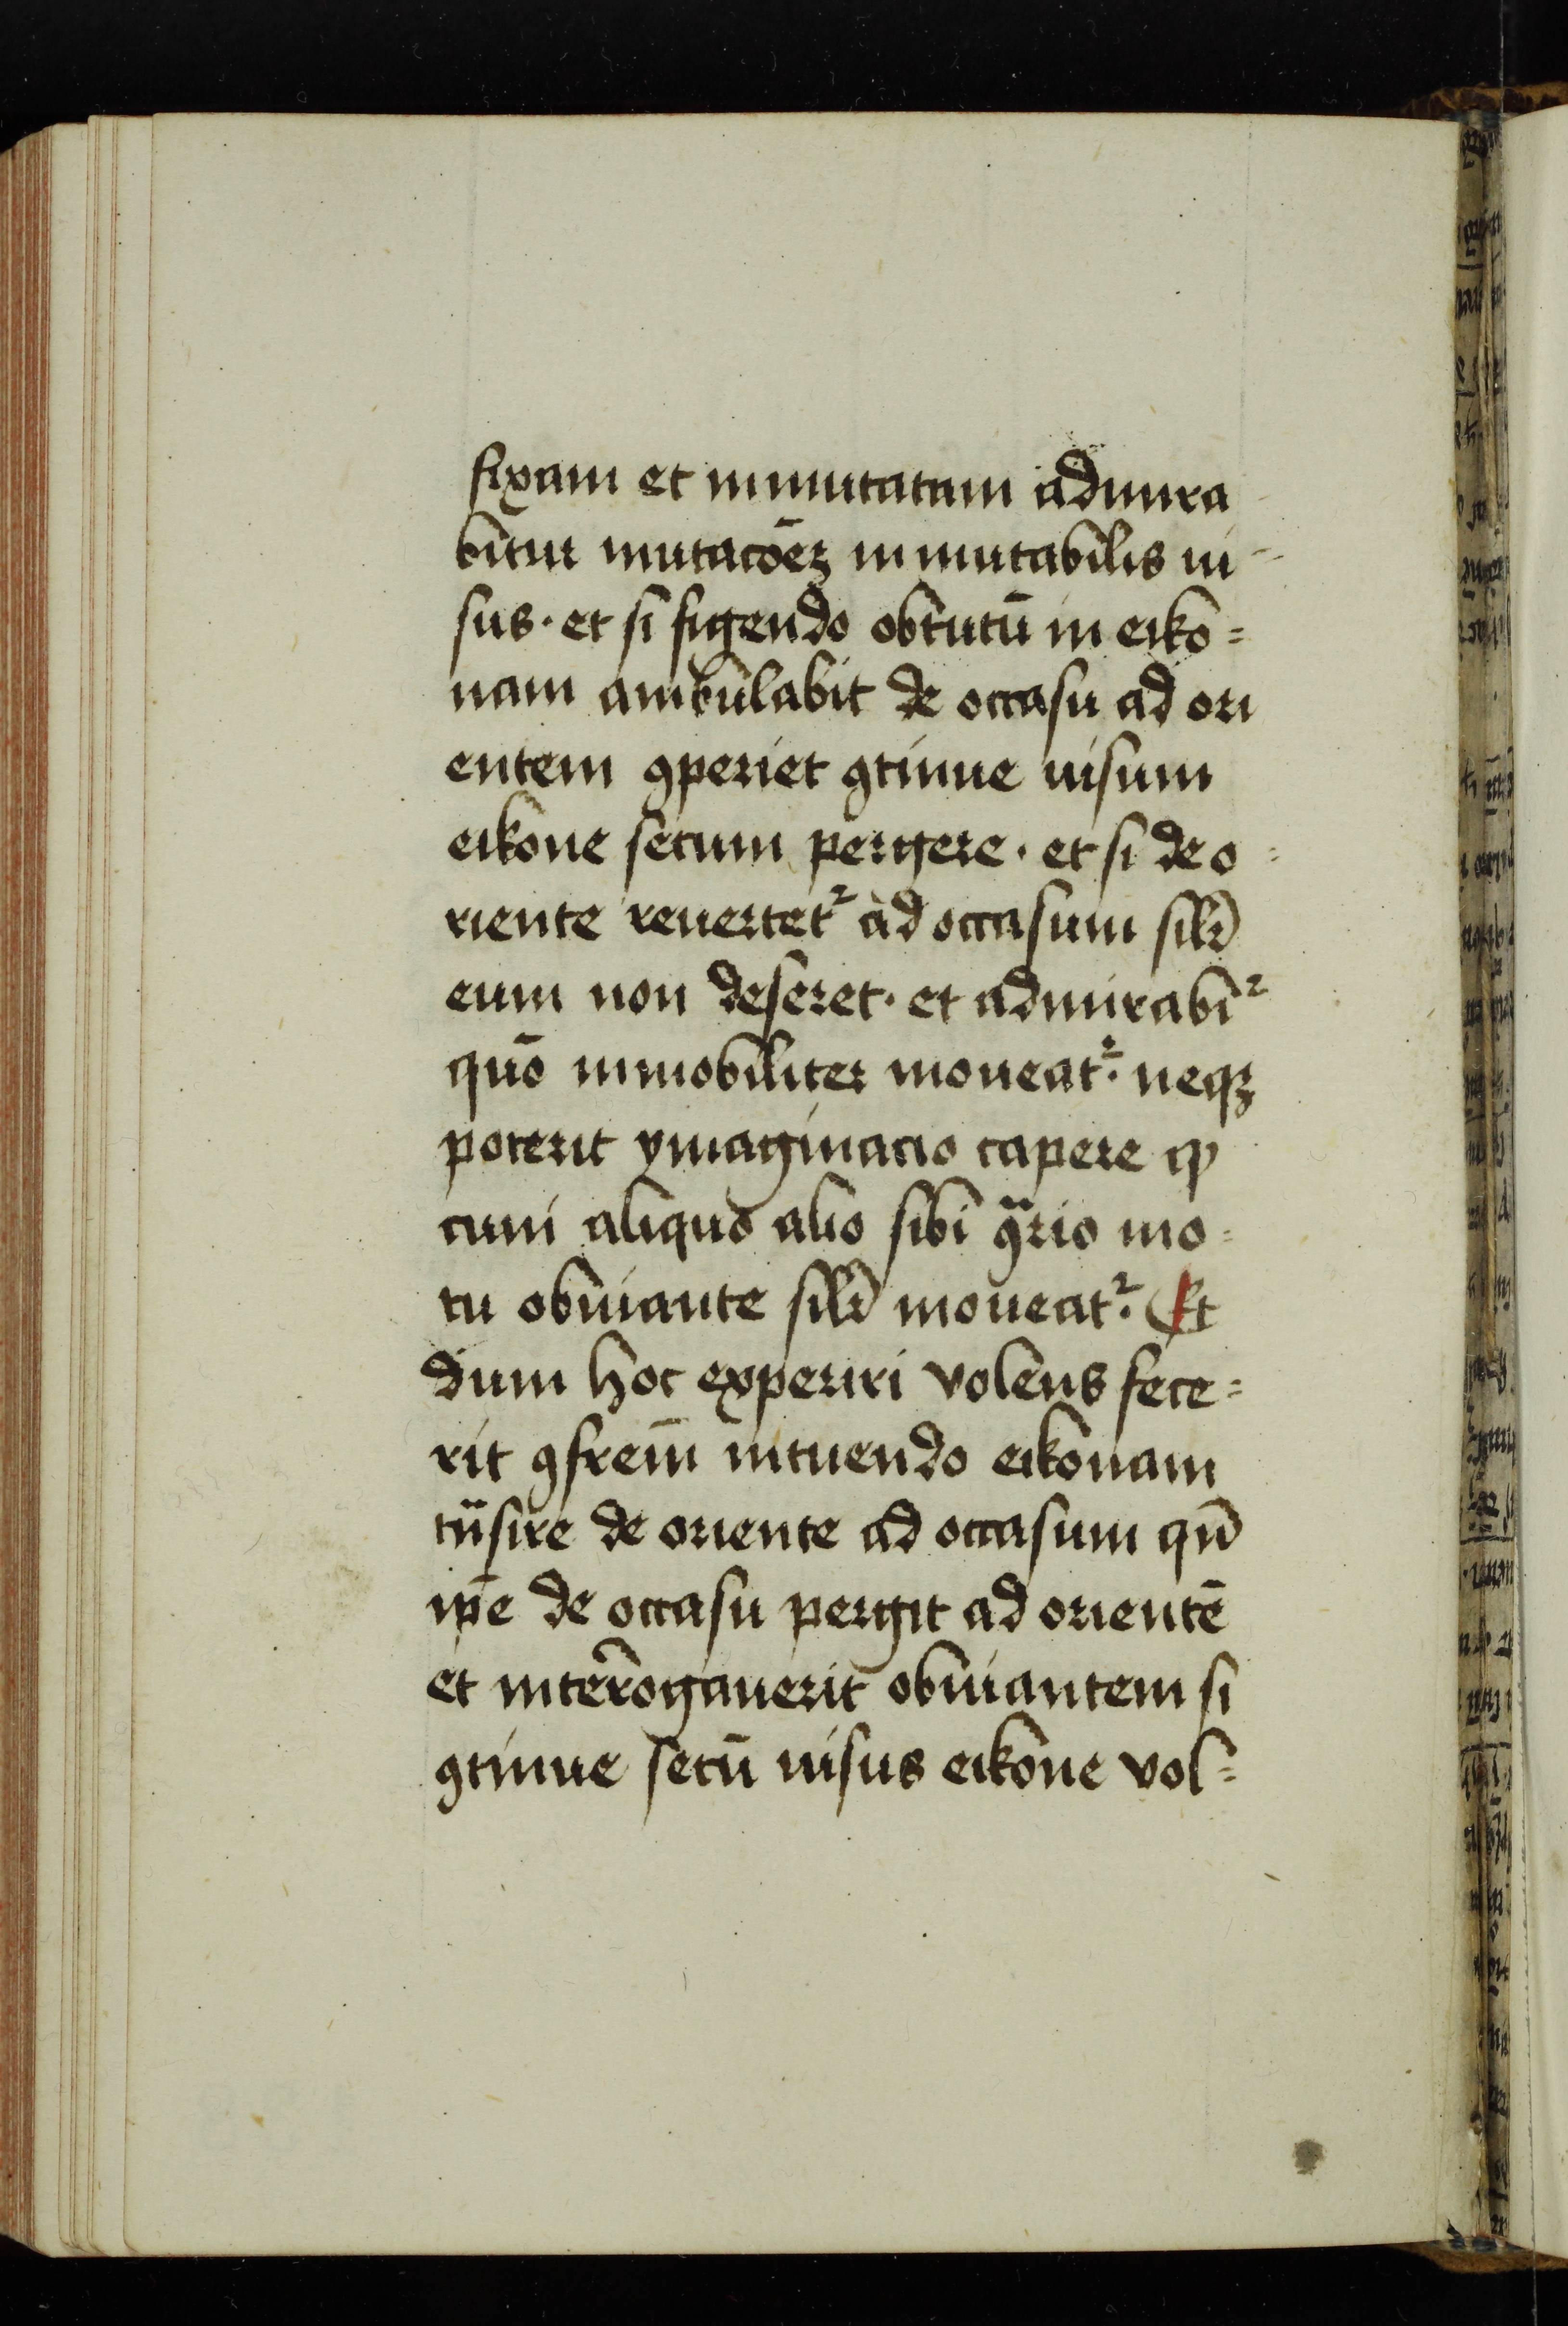 fixam et inmutatam admira
bitur mutacōeꝫ inmutabilis ui-
sus · et si figendo obtutū in eiko=
nam ambulabit de occasu ad ori
entem ꝯperiet ꝯtinue uisum
eikone secum pergere · et si de o=
riente reuertet᷑ ad occasum silr̄
eum non deseret · et admirabit᷑
quō inmobiliter moueat᷑ · neqꝫ
poterit ymaginacio capere ꝙ
cum aliquo alio sibi ꝯᷓrio mo=
tu obuiante silr̄ moueat᷑ · Et
dum hoc experiri volens fece=
rit ꝯfrem̄ intuendo eikonam
tᷓsire de oriente ad occasum qn̄
ip̄e de occasu pergit ad orientē
et interrogauerit obuiantem si
ꝯtinue secū uisus eikone vol=